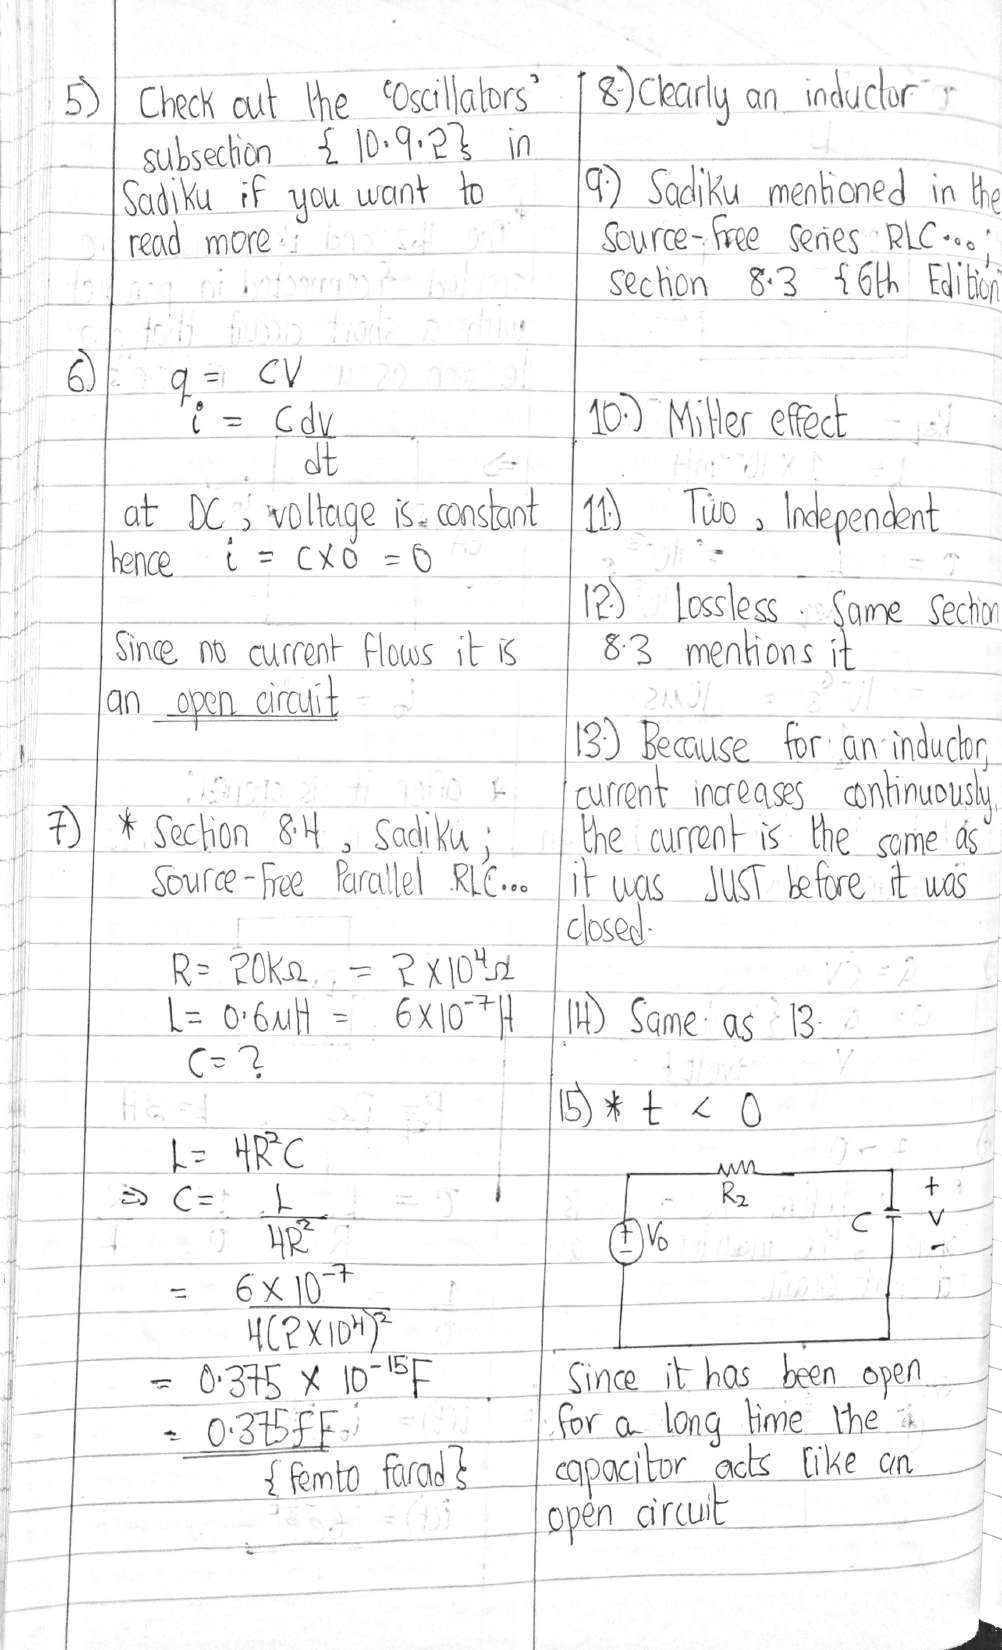 5) Check out the 'Oscillators'
subsection { 10.9.2} in
Sadiku if you want to
read more
6) q = CV
i = Cdv
dt
at DC, voltage is constant
hence i = C X 0 = 0
Since no current flows it is
an open circuit
7) * Section 8.4, Sadiku;
Source-Free Parallel RLC...
R= 20KΩ = 2 X10⁴Ω
L= 0.6μH = 6X10⁻⁷H
C= ?
L= 4R²C
⇒ C= L
4R²
= 6 X 10⁻⁷
4(2X10⁴)²
= 0.375 X 10⁻¹⁵F
= 0.375fF
{femto farad}
8.) Clearly an inductor
9.) Sadiku mentioned in the
Source-free series RLC...;
section 8.3 {6th Edition
10.) Miller effect
11.) Two, Independent
12.) Lossless. Same section
8.3 mentions it
13.) Because for an inductor,
current increases continuously,
the current is the same as
it was JUST before it was
closed.
14) Same as 13.
15) * t < 0
R₂
+
C V
-
+
- V₀
Since it has been open
for a long time the
capacitor acts like an
open circuit